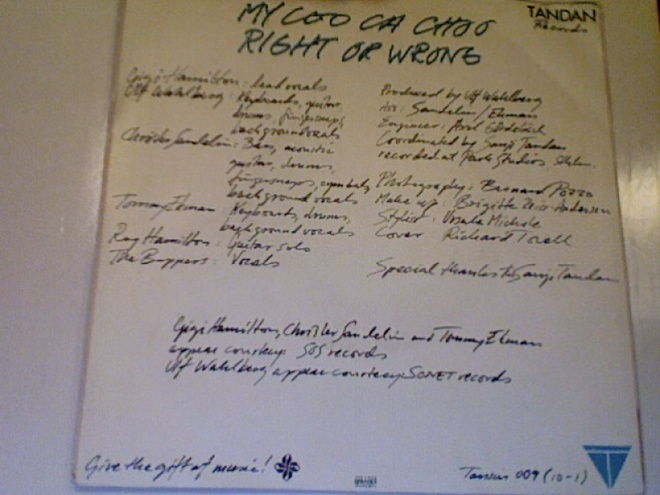 MY COO CA CHOO
RIGHT OR WRONG
TANDAN
Records
Gigi Hamilton : Lead vocals
Ulf Wahlberg : Keyboards, guitar,
drums, fingersnaps,
background vocals
Christer Sandelin : Bass, acoustic
guitar, drums,
fingersnaps, cymbals,
background vocals
Tommy Ekman : Keyboards, drums,
background vocals
Ray Hamilton : Guitar solo
The Boppers : Vocals
Produced by Ulf Wahlberg
Sandelin / Ekman
Engineer :
Coordinated by Sanji Tandan
recorded at Park Studios, Sthlm.
Photography : Bernard
Make up : Brigitte
Stylist : Ursula
Cover : Richard Torell
Special thanks to Sanji Tandan
Gigi Hamilton, Christer Sandelin and Tommy Ekman
appear courtesy SOS records
Ulf Wahlberg appear courtesy SONET records
Give the gift of music!
009 (10-1)